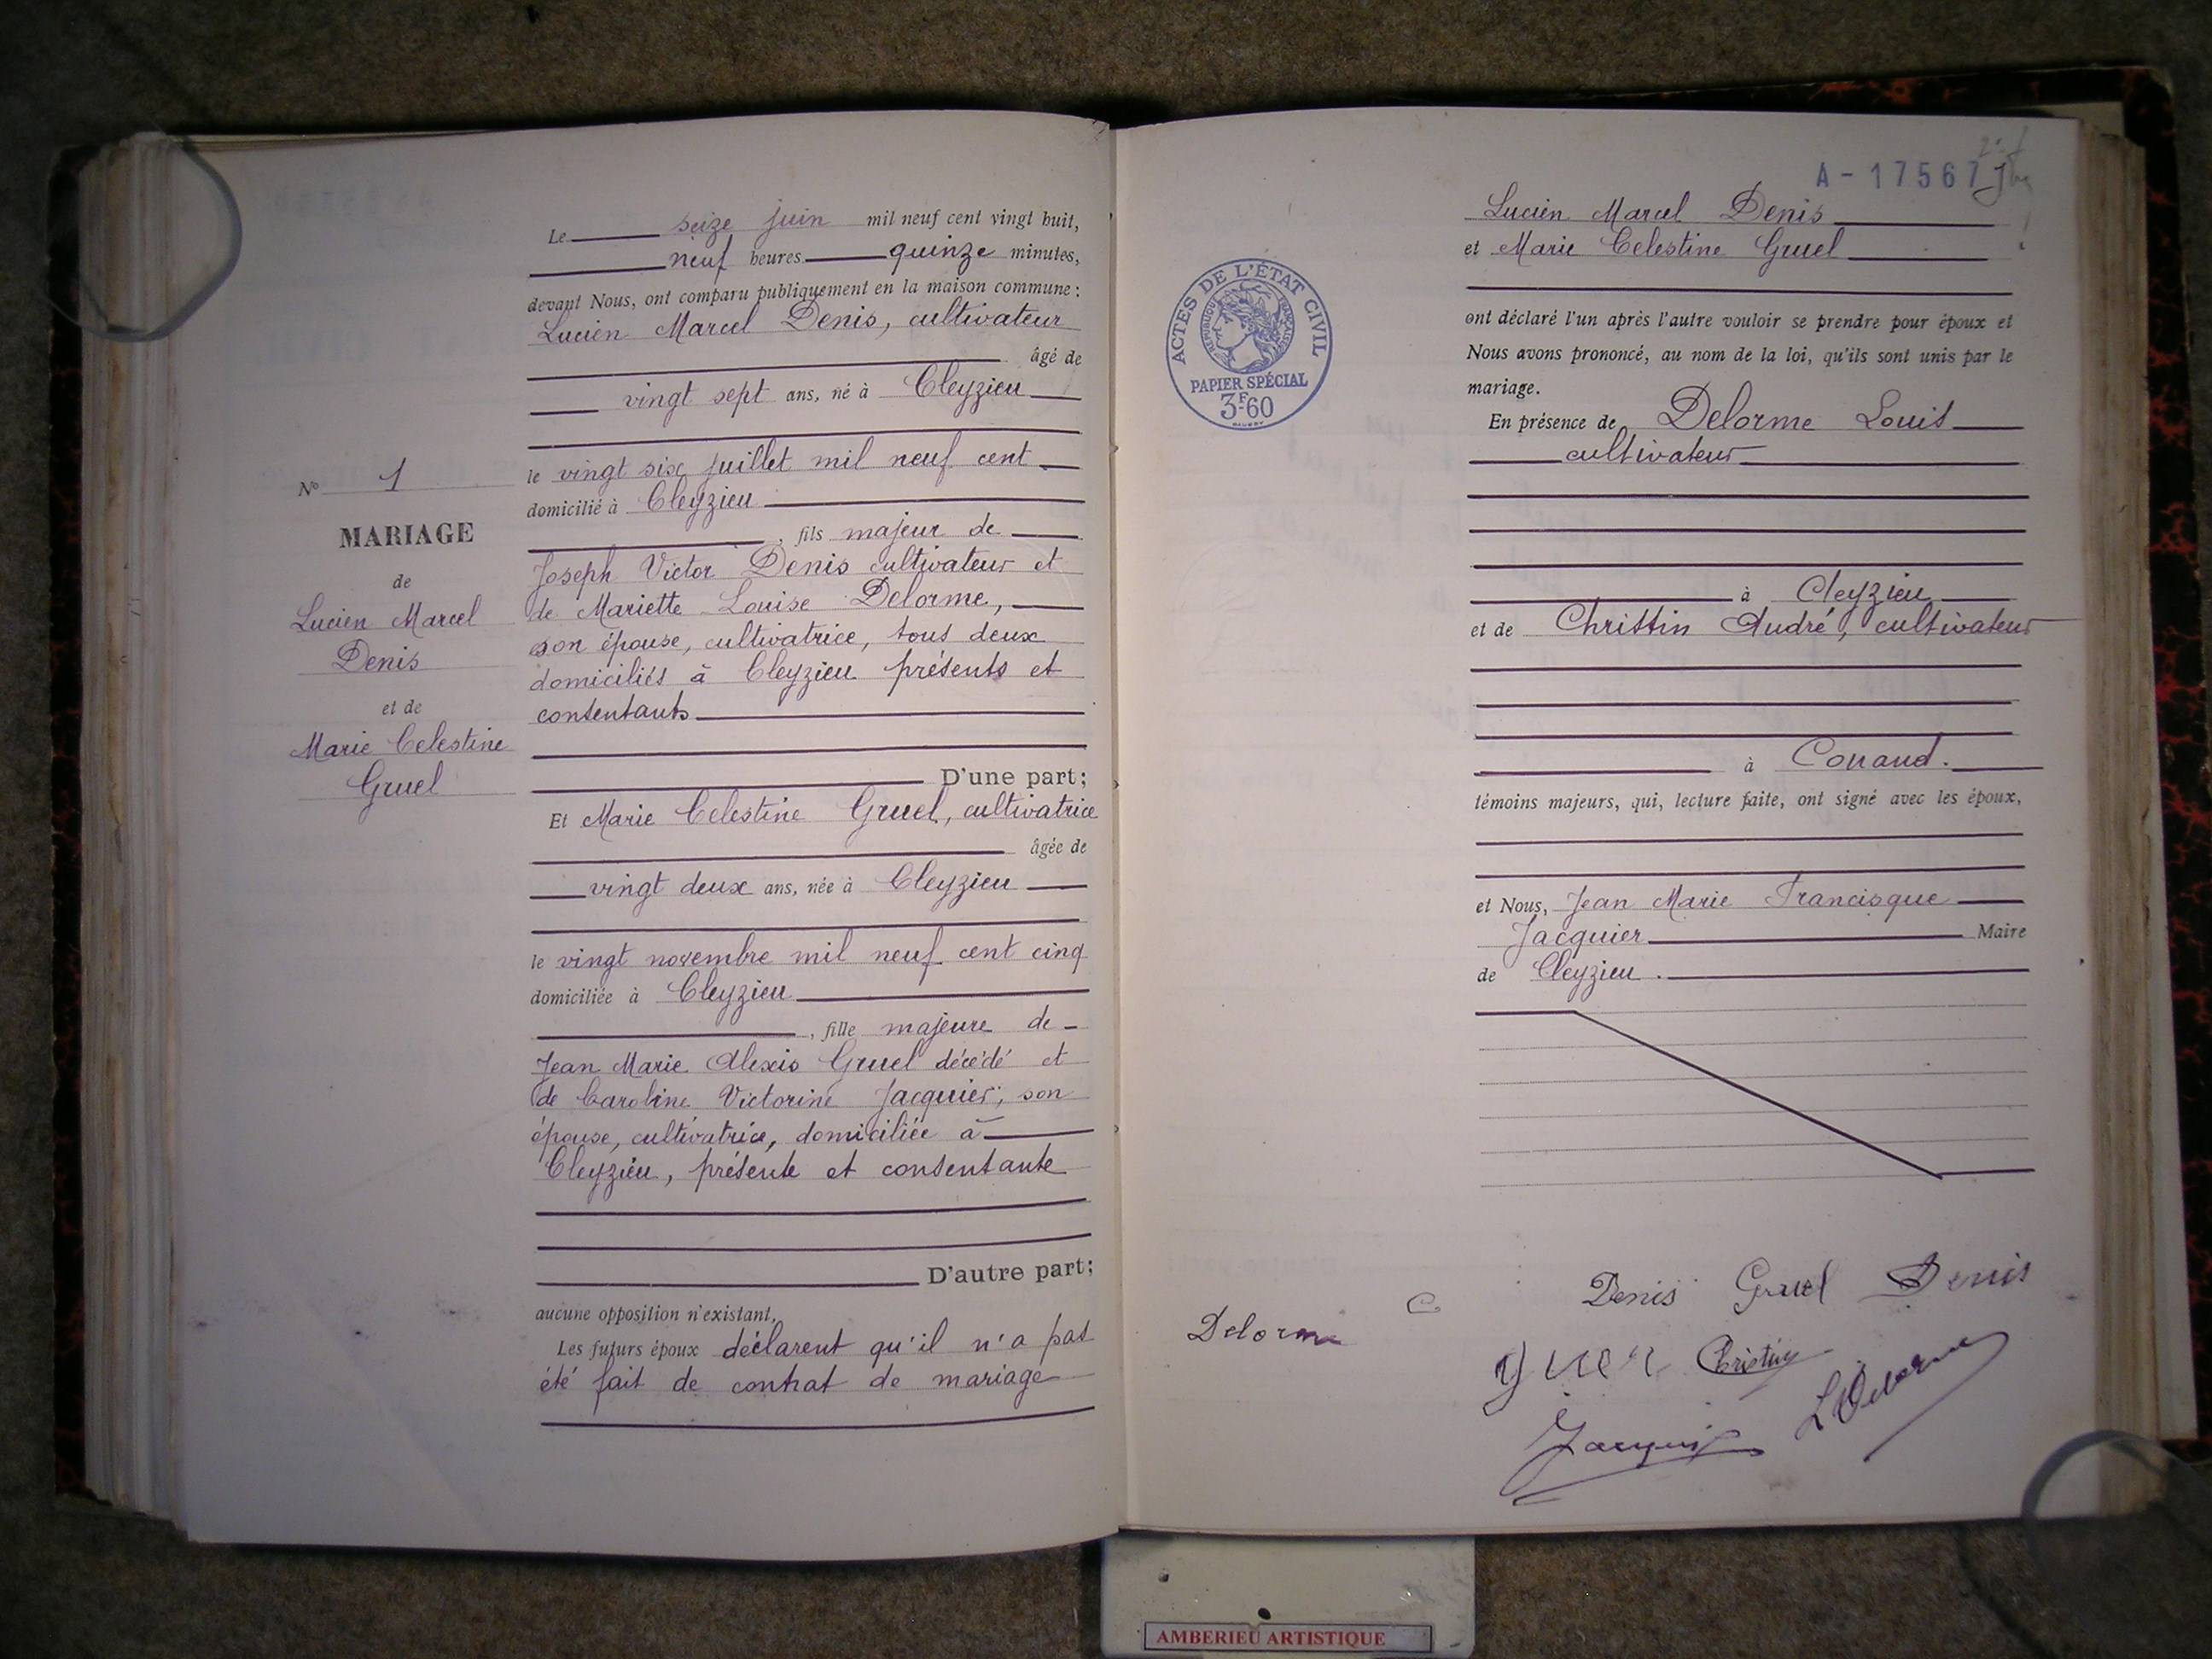 N° 1
MARIAGE
de
Lucien Marcel
Denis
et de
Marie Celestine
Gruel
Le seize juin mil neuf cent vingt huit,
neuf heures quinze minutes,
devant Nous, ont comparu publiquement en la maison commune :
Lucien Marcel Denis, cultivateur
âgé de
vingt sept ans, né à Cleyzieu
le vingt six juillet mil neuf cent
domicilié à Cleyzieu
, fils majeur de
Joseph Victor Denis cultivateur et
de Mariette Louise Delorme,
son épouse, cultivatrice, tous deux
domiciliés à Cleyzieu présents et
consentants
D'une part;
Et Marie Celestine Gruel, cultivatrice
âgée de
vingt deux ans, née à Cleyzieu
le vingt novembre mil neuf cent cinq
domiciliée à Cleyzieu
, fille majeure de
Jean Marie Alexis Gruel décédé et
de Caroline Victorine Jacquier, son
épouse, cultivatrice, domiciliée à
Cleyzieu, présente et consentante
D'autre part;
aucune opposition n'existant,
Les futurs époux déclarent qu'il n'a pas
été fait de contrat de mariage
A-17567
ACTES DE L'ÉTAT CIVIL
RÉPUBLIQUE FRANÇAISE
PAPIER SPÉCIAL
3F60
Lucien Marcel Denis
et Marie Celestine Gruel
ont déclaré l'un après l'autre vouloir se prendre pour époux et
Nous avons prononcé, au nom de la loi, qu'ils sont unis par le
mariage.
En présence de Delorme Louis
cultivateur
à Cleyzieu
et de Christin André, cultivateur
à Conand.
témoins majeurs, qui, lecture faite, ont signé avec les époux,
et Nous, Jean Marie Francisque
Jacquier Maire
de Cleyzieu.
Denis Gruel Denis
Delorme
Cristin
L Delorme
Jacquier
AMBERIEU ARTISTIQUE